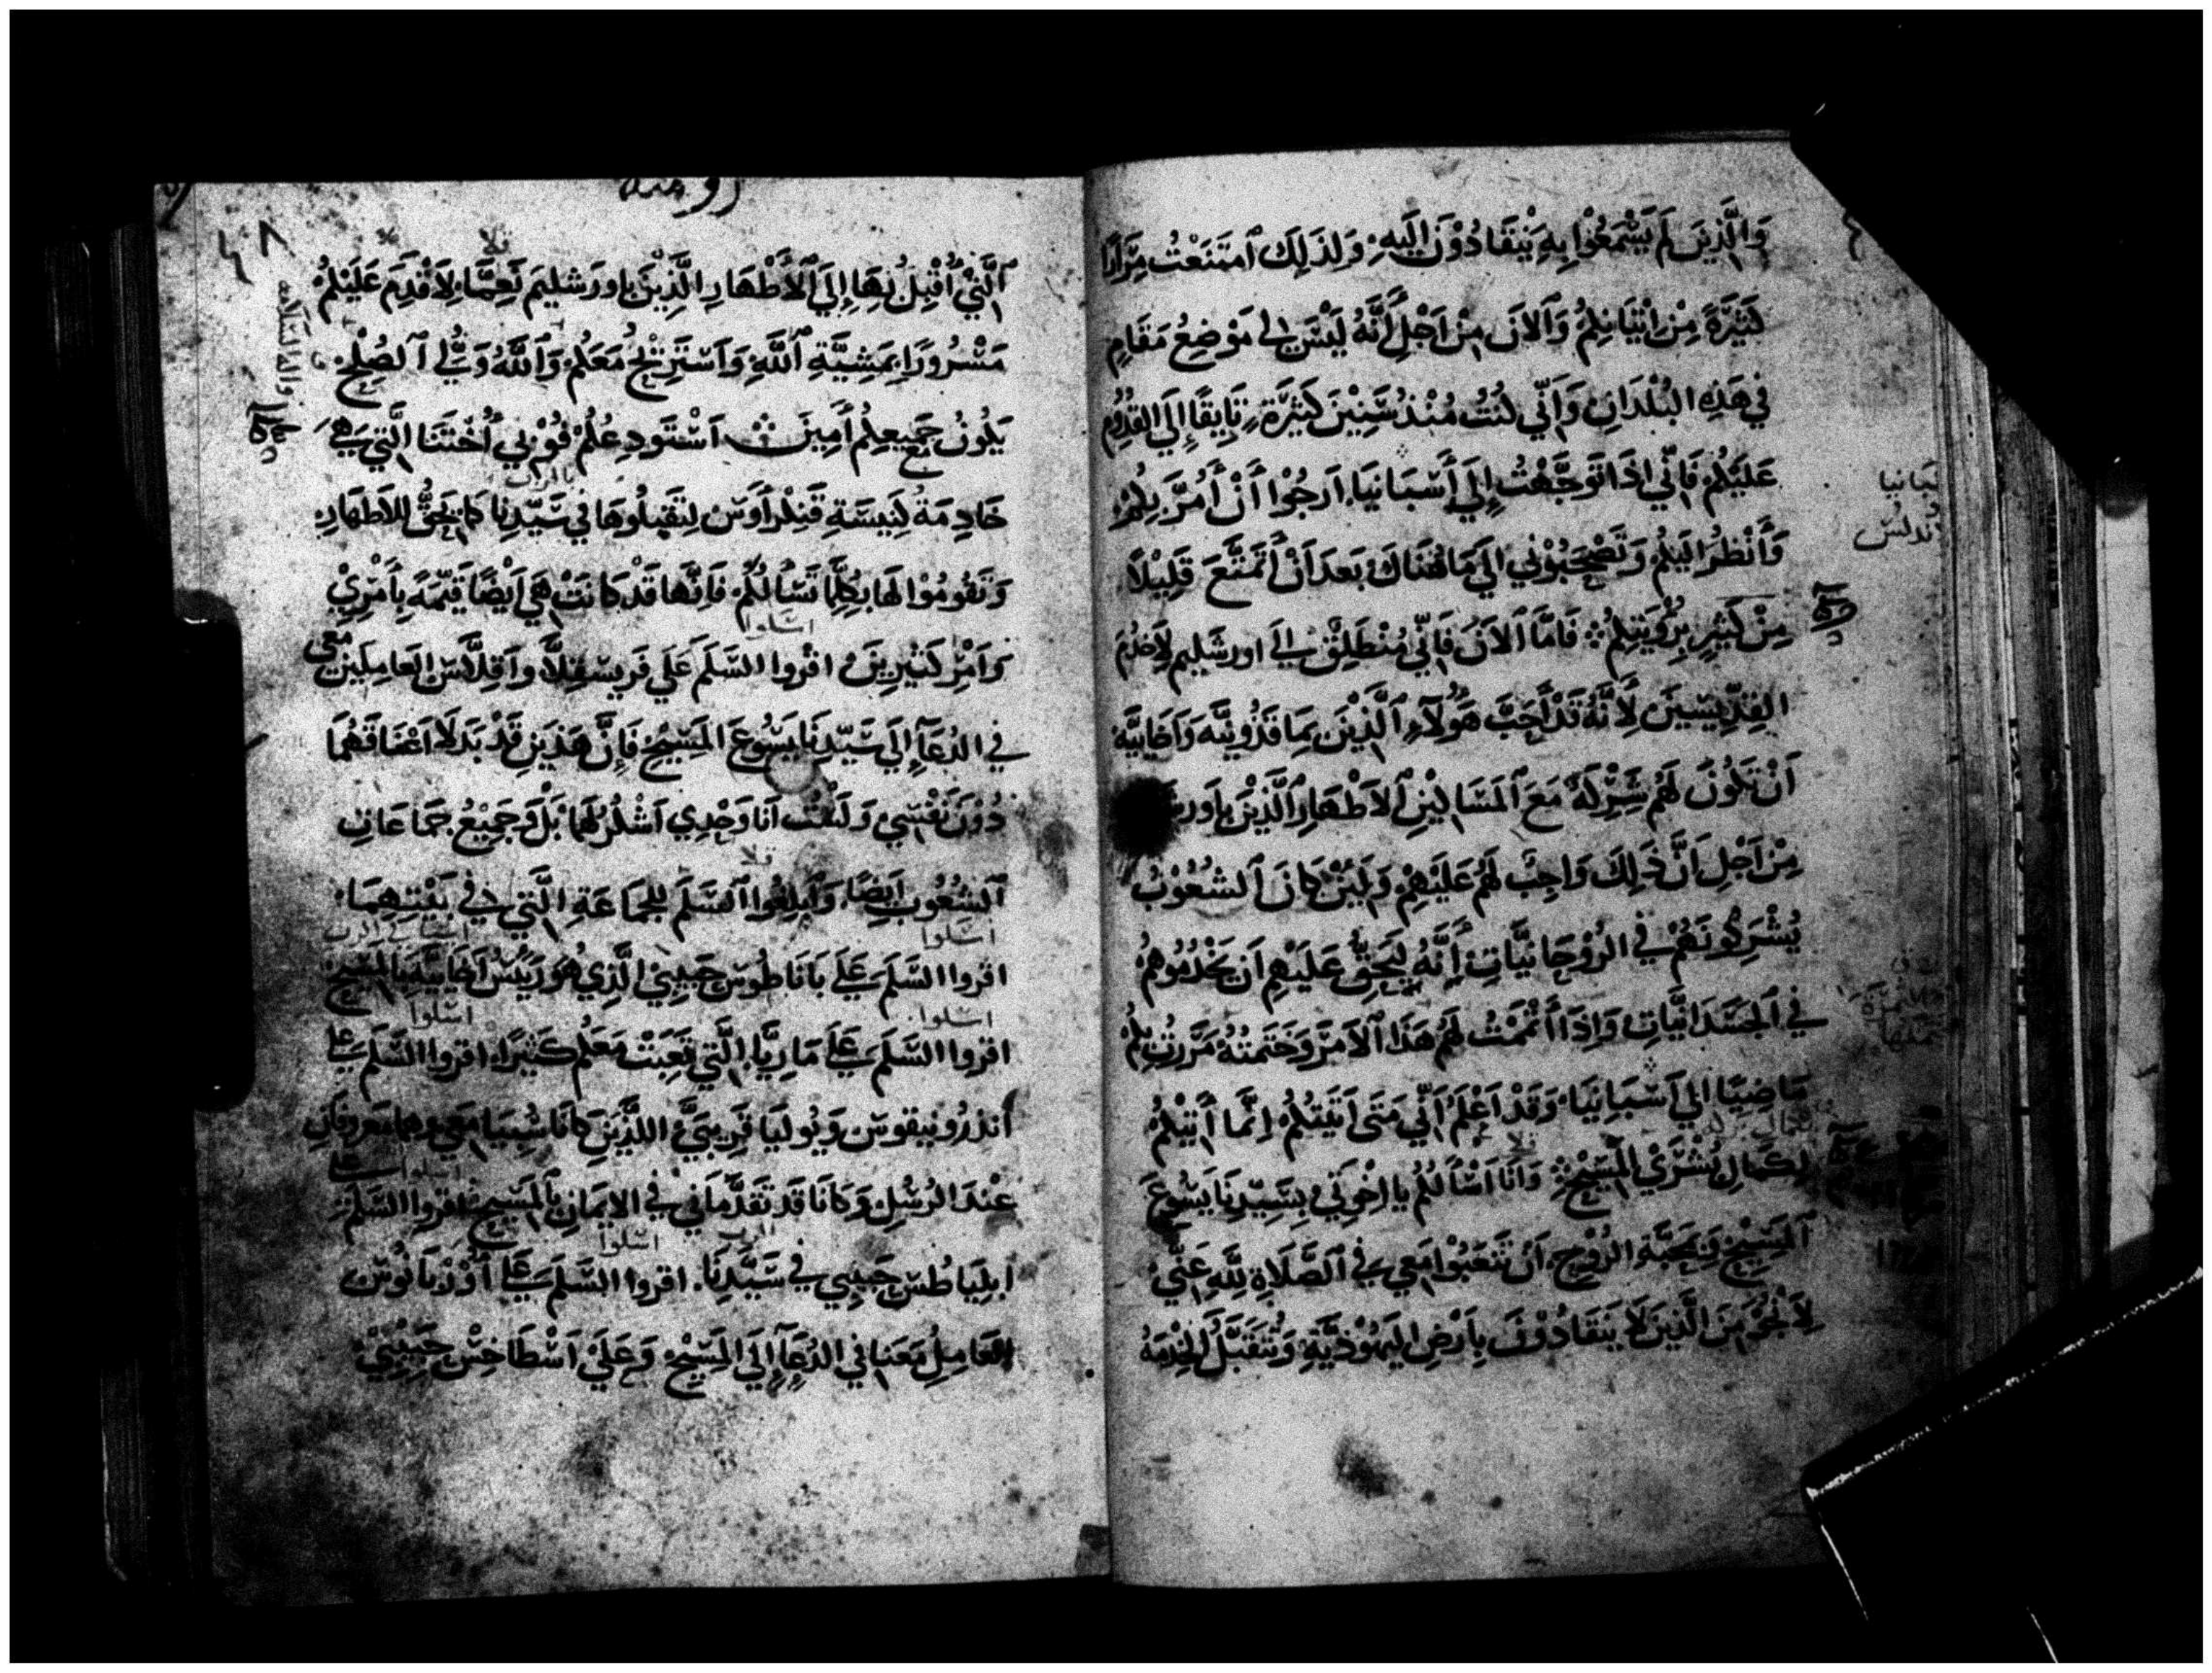 وَالَّذِينَ لَمْ يَسْمَعُوْا بِهِ يَنْقَادُوْنَ إِلَيهِ، وَلِذَلِكَ ٱمتَنَعْتُ مِرَارًا
كَثِيْرَةً مِنْ إِتْيَانِكُمْ وَٱلآنَ مِنْ اَجْلِ أَنَّهُ لَيْسَ لِي مَوْضِعُ مَقَامٍ
فِي هَذِهِ البُلْدَانِ وَأَنِّي كُنتُ مُنْذُ سِّنِيْنَ كَثِيْرَةٍ تَايِقًا إِلَي القُدُومِ
عَلَيْكُمْ فَإِنِّي إِذَا تَوَجَّهْتُ إِلَي أَسْبَانيَا، اَرجُوْا أَنْ أَمُرَّ بِكُمْ
وَأَنْظُرَ إِلَيكُم وَتَصْحَبُوْنِي إِلَي مَا هُنَاكَ بَعدَ اَنْ أَتَمَتَّعَ قَلِيْلًا
مِنْ كَثِيرٍ بِرُؤْيَتِكُمْ فَامَّا ٱلاَنَ فَإِنِّي مُنْطَلِقٌ إِلَي اورشَليم لِأَخدُمَ
القِدِّيسِيْنَ لِأَنَّهُ قَدْ أَحَبَّ هَؤُلَآءِ ٱلَّذِيْنَ بِمَاقَذُونيَّه وَاَخَايِيَّه
اَنْ تَكُوْنَ لَهُمْ شَرِكَةٌ مَعَ ٱلمَسَاكِيْنِ ٱلأَطْهَارِ ٱلَّذِيْنَ
مِنْ اَجْلِ اَنَّ ذَلِكَ وَاجِبٌ لَهُمْ عَلَيْهِمْ وَلَئِنْ كَانَ ٱلشُعُوْبُ
يُشْرَكُونَهُمْ فِي الرُوْحَانِيَّاتِ إِنَّهُ لَيَحِقُّ عَلَيْهِم اَن يَخْدُمُوهُمْ
فِي ٱلجَسَدَانِيَّاتِ وَإِذَا أَتْمَمْتُ لَهُمْ هَذَا ٱلأَمرَ وَخَتَمتُهُ مَرَرتُ بِكُمْ
مَاضِيًا إِلَي أَسْبَانِيَا، وَقَدْ اَعْلَمُ اَنِّي مَتَى اَتَيْتُكُمْ إِنَّمَا أَتِيْكُمْ
بِكَمَالِ بُشْرَيْ المَسِيْحِ وَانَا اَسْأَلُكُم يا إِخْوَتِي بِسَيِّدِنَا يَسُوعَ
ٱلمَسِيْحِ وَبِمَحَبَّةِ الرُوْحِ، اَنْ تَتعَبُوْا مَعِي فِي ٱلصَّلَاةِ لِلَّهِ عَنِّي
لِأَنجُوَ مِنَ الَّذِينَ لَا يَنقَادُوْنَ بِاَرْضِ اليَهُوْدِيَّةِ وَتُتَقَبَّلَ الخِدْمَةُ
سبانيا
ندلس
روميه
٤٨
ٱلَّتِي أُقْبِلُ بُهَا إِلَي ٱلأَطْهَارِ الَّذِيْنَ بِاورَشليمَ نَعِمَّا، لِأَقْدِمَ عَلَيْكُمْ
مَسْرُورًا بِمَشِيَّةِ ٱللَّهِ وَاَسْتَرِيْحُ مَعَكُمْ وَٱللَّهُ وَلِيُّ ٱلصُلْحِ
يَكُونُ جَمِيعِكُمْ أَمِينَ اَسْتَودِعُكُمْ فُوْبِي أُخْتَنَا الَّتِي هِيَ
خَادِمَةُ كَنِيسَةِ قَنكرَأَوَسْ لِتَقبَلُوهَا فِي سَيِّدِنَا كَمَا يَحِقُّ لِلأَطهَارِ
وَتَقُومُوْا لَهَا بِكُلِّمَا تَسْأَلُكُمْ، فَإِنَّهَا قَدْ كَانَتْ هِيَ أَيْضًا قَيِّمَةً بِأَمْرِيْ
وَاَمْرِ كَثِيْرِيْنَ اقْرُوا السَّلَمَ عَلَي فَرِيسقِلَّا وَاَقِلَّاسَ العَامِلَيْنِ مَعِي
فِي الدُعَآءِ إِلَي سَيِّدِنَا يَسُوعَ المَسِيْحِ فَإِنَّ هَذَينِ قَدْ بَدَلَا اَعْنَاقَهُمَا
دُوْنَ نَفْسِي وَلَسْتُ اَنَا وَحْدِي اَشْكُرُهُمَا بَلْ وَجَمِيْعُ جَمَاعَاتِ
ٱلشُعُوْبِ اَيضًا، وَاَبلِغُوا ٱلسَّلَمَ لِلجَمَاعَةِ الَّتِي فِي بَيْتِهِمَا
اقروا السَّلَمَ عَلَي بَانَاطُوسْ حَبِيبِي الَّذِي هُوَ رَئِيسُ اَخَايِيَّه بِالمَسِيحِ
اقروا السَّلَمَ عَلَي مَارِيَّا، الَّتِي تَعِبَتْ مَعَكُم كثِيرًا، اقروا السَّلَمَ عَلَي
اَندَرُونِيقوسْ وَيُولِيَا قَرِيبَيَّ اللَّذَيْنِ كَانَا سُبِيَا مَعِي وهما مَعروفَانِ
عِنْدَ الرُسُلِ وَكَانَا قَد تَقَدَّمَانِي فِي الايمَانِ بِٱلمَسِيحِ اقروا السَّلَمَ
ابلِيَاطُسْ حَبِيبِي فِي سَيِّدِنَا. اقروا السَّلَمَ عَلَي اُوْرْبَانُوسْ
العَامِلُ مَعَنا فِي الدُعَآءِ إِلَي المَسِيْحِ وَعَلَيْ اَسْطَاخِسْ حَبِيْبِيْ